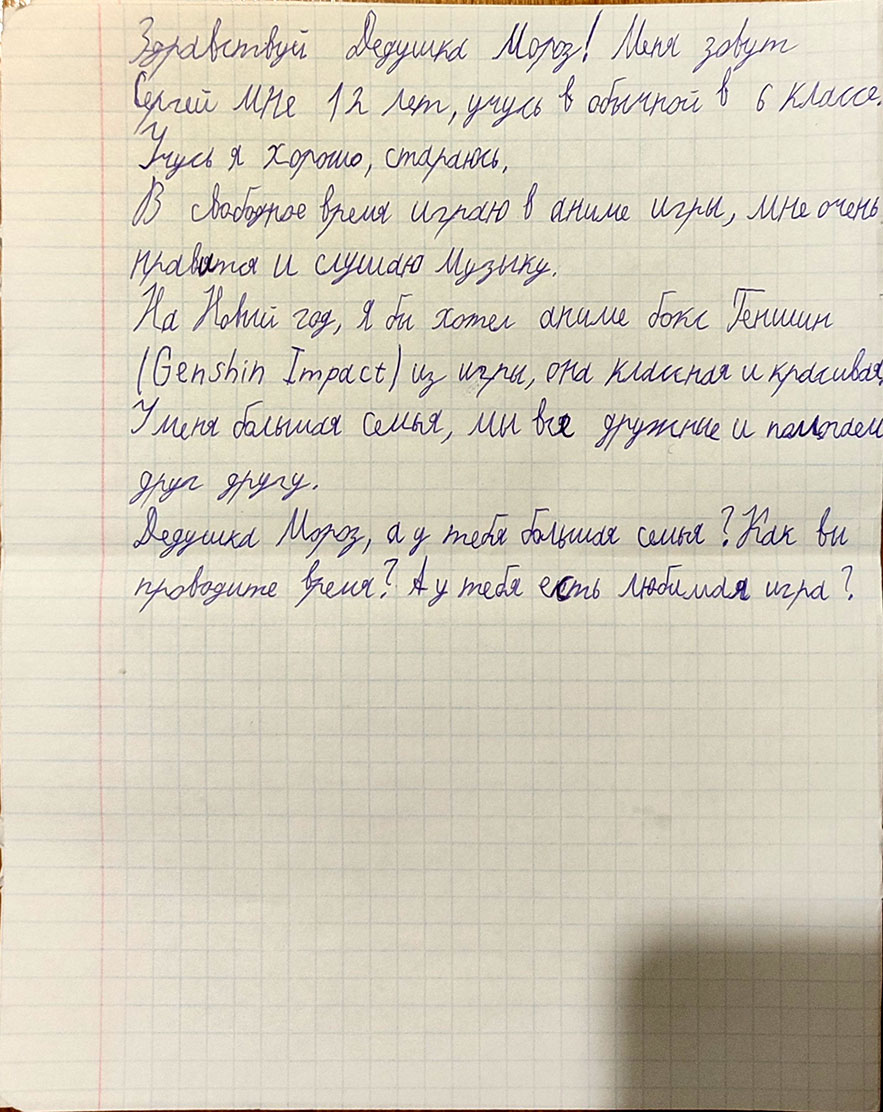 Здравствуй Дедушка Мороз! Меня зовут
Сергей мне 12 лет, учусь в обычной в 6 классе.
Учусь я хорошо, стараюсь,
В свободное время играю в аниме игры, мне очень
нравится и слушаю музыку.
На Новый год, я бы хотел аниме бокс Геншин
(Genshin Impact) из игры, она классная и красивая,
У меня большая семья, мы все дружние и помогаем
друг другу.
Дедушка Мороз, а у тебя большая семья? Как вы
проводите время? А у тебя есть любимая игра?